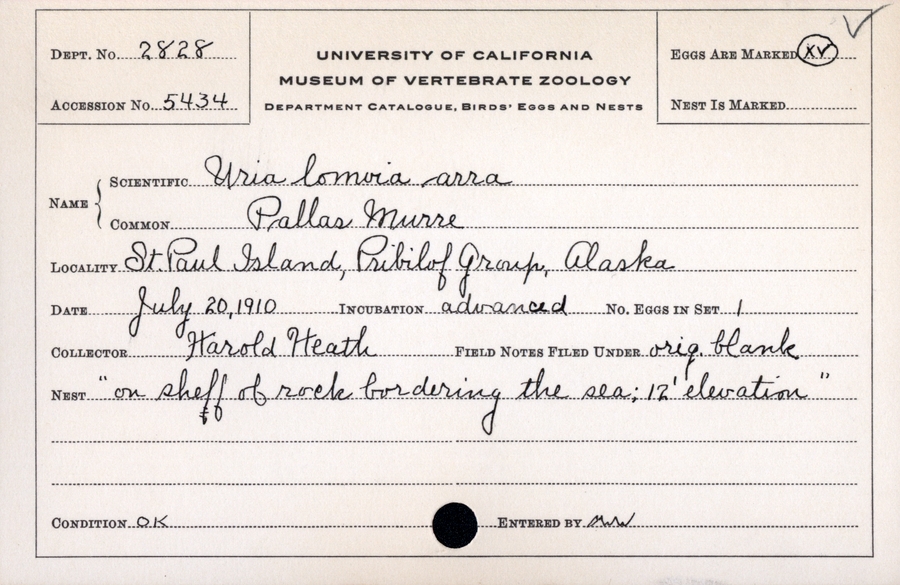 DEPT. No. 2828
ACCESSION No. 5434
UNIVERSITY OF CALIFORNIA
MUSEUM OF VERTEBRATE ZOOLOGY
DEPARTMENT CATALOGUE, BIRDS' EGGS AND NESTS
EGGS ARE MARKED XV
NEST IS MARKED
NAME
SCIENTIFIC Uria lomvia arra
COMMON Pallas Murre
LOCALITY St. Paul Island, Pribilof Group, Alaska
DATE July 20, 1910 INCUBATION advanced NO. EGGS IN SET 1
COLLECTOR Harold Heath FIELD NOTES FILED UNDER orig. blank
NEST "on shelf of rock bordering the sea; 12' elevation"
CONDITION OK ENTERED BY